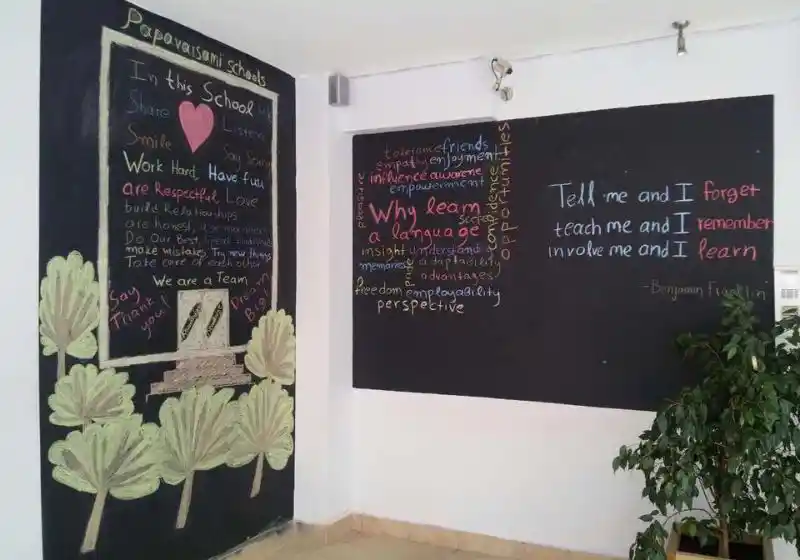 Papavaisami schools
In this School We
Share
Listen
Smile
Say Sorry
Work Hard, Have fun
are Respectful Love
build Relationships
are honest, use manners
Do Our Best,
make mistakes, Try new things
Take care of each other
We are a Team
Say
Thank
you!
Dream
Big
tolerance friends
empathy enjoyment
influence aware
empowerment
pleasure
Why learn
a language
success
confidence
opportunities
insight understand
memories
pride
adaptability
advantages
freedom employability
perspective
Tell me and I forget
teach me and I remember
involve me and I learn
-Benjamin Franklin